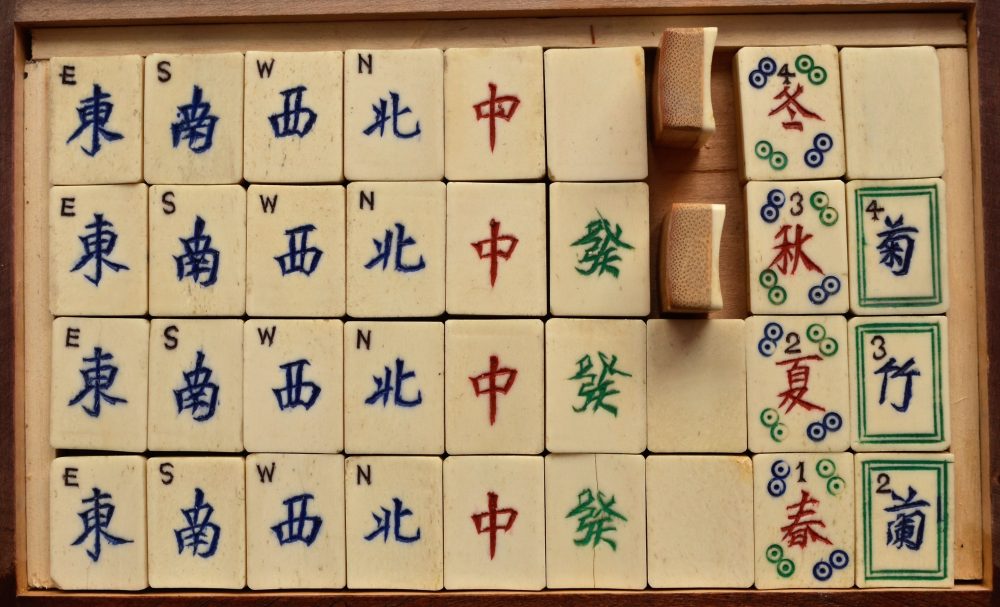 E S W N 4
東 南 西 北 中 冬
E S W N 3 4
東 南 西 北 中 發 秋 菊
E S W N 2 3
東 南 西 北 中 發 夏 竹
E S W N 1 2
東 南 西 北 中 發 春 蘭